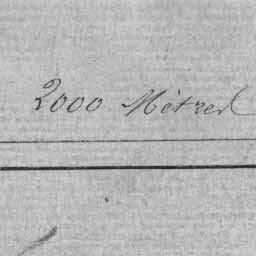 2000 Mètres